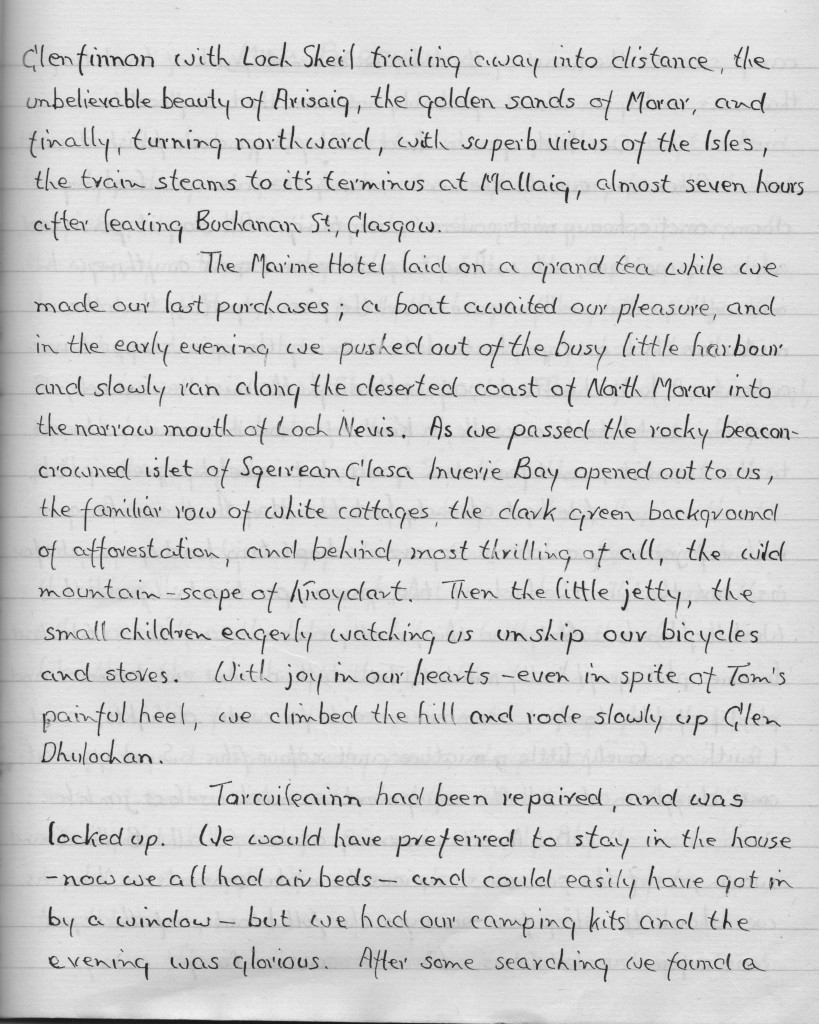 Glenfinnon with Loch Sheil trailing away into distance, the
unbelievable beauty of Arisaig, the golden sands of Morar, and
finally, turning northward, with superb views of the Isles,
the train steams to it's terminus at Mallaig, almost seven hours
after leaving Buchanan St, Glasgow.
The Marine Hotel laid on a grand tea while we
made our last purchases; a boat awaited our pleasure, and
in the early evening we pushed out of the busy little harbour
and slowly ran along the deserted coast of North Morar into
the narrow mouth of Loch Nevis. As we passed the rocky beacon-
crowned islet of Sgeirean Glasa Inverie Bay opened out to us,
the familiar row of white cottages, the dark green background
of afforestation, and behind, most thrilling of all, the wild
mountain-scape of Knoydart. Then the little jetty, the
small children eagerly watching us unship our bicycles
and stoves. With joy in our hearts - even in spite of Tom's
painful heel, we climbed the hill and rode slowly up Glen
Dhulochan.
Torcuileainn had been repaired, and was
locked up. We would have preferred to stay in the house
- now we all had air beds - and could easily have got in
by a window - but we had our camping kits and the
evening was glorious. After some searching we found a